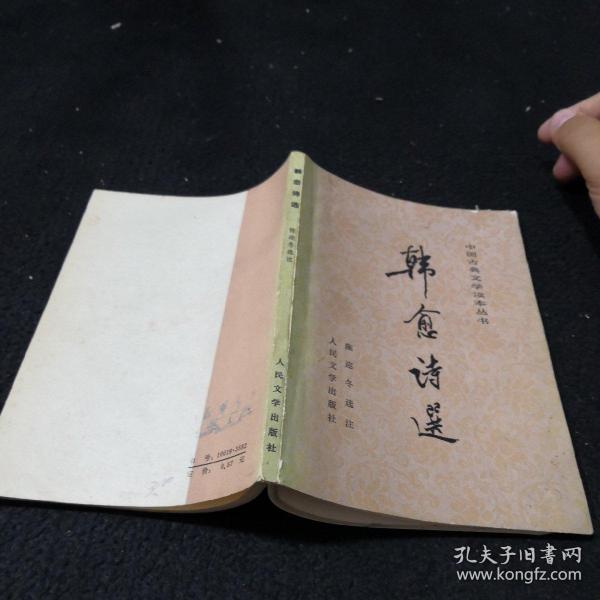 中国古典文学读本丛书
韩愈诗選
陈迩冬选注
人民文学出版社
韩愈诗选
陈迩冬选注
人民文学出版社
书号：10019·3582
定价：0.57元
孔夫子旧书网
www.kongfz.com